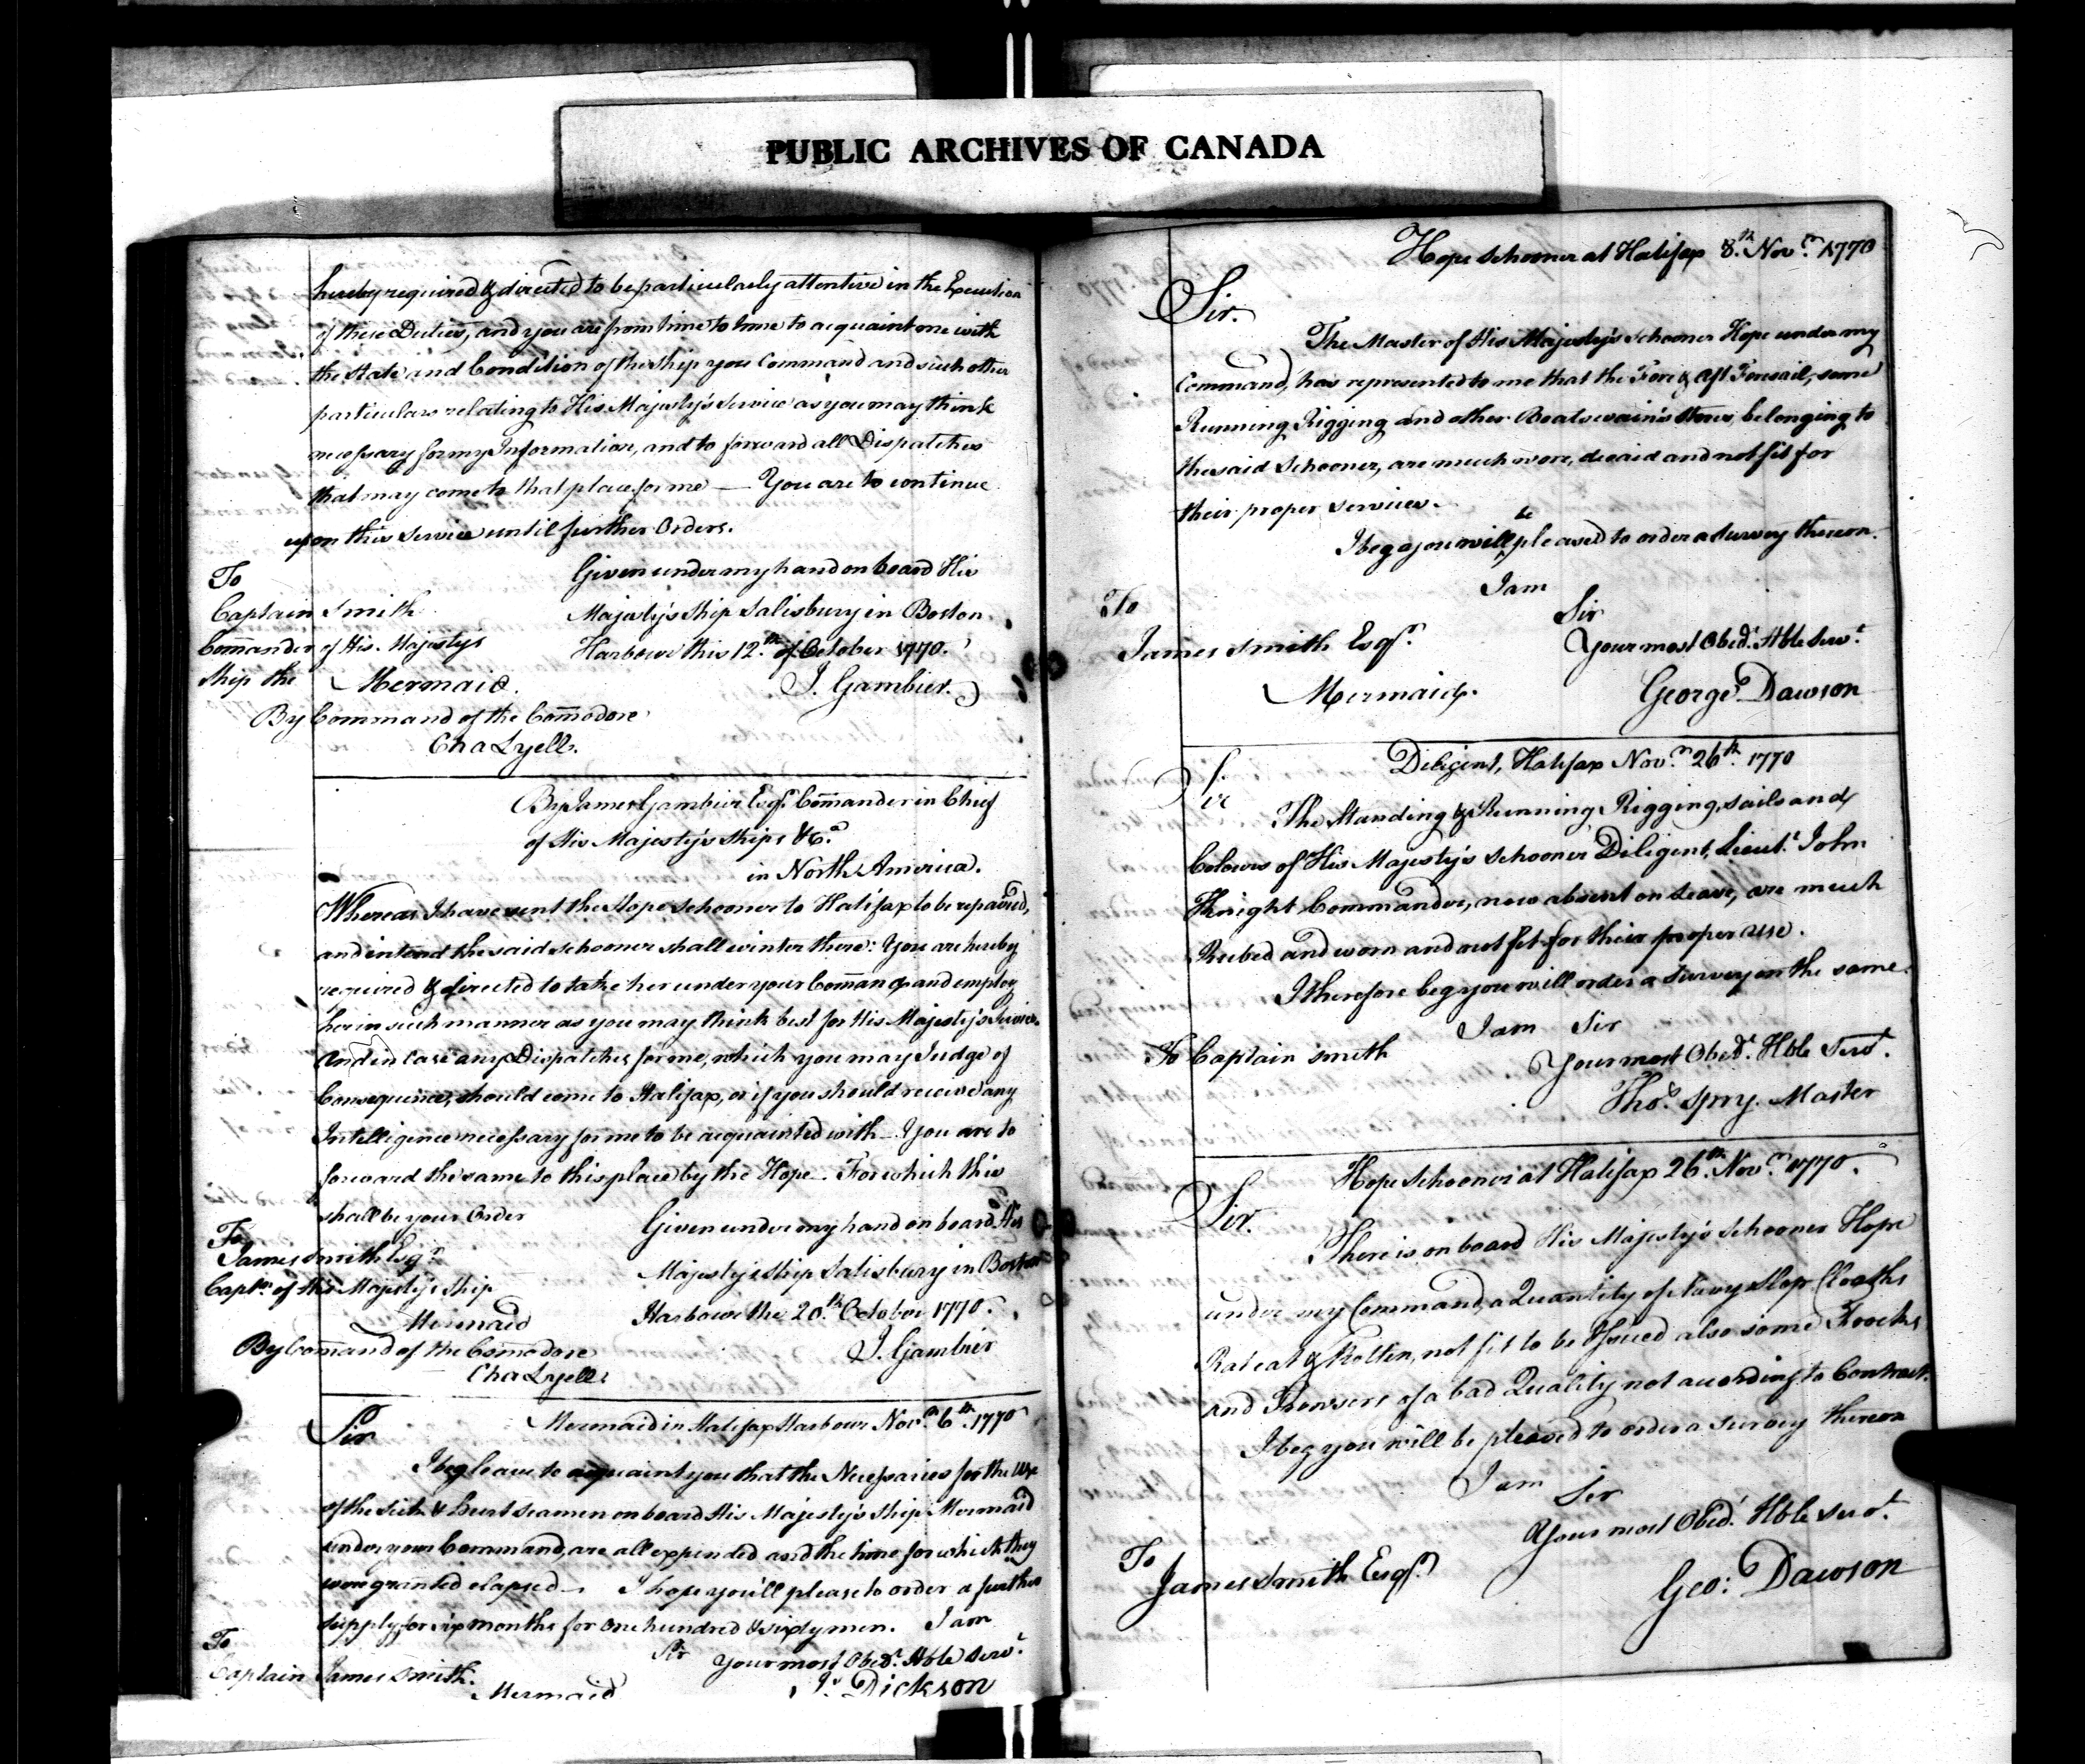 PUBLIC ARCHIVES OF CANADA
hereby required & directed to be particularly attentive in the Execution
of these Duties, and you are from time to time to acquaint me with
the State and Condition of the Ship you Command and such other
particulars relating to His Majesty's Service as you may think
necessary for my Information, and to forward all Dispatches
that may come to that place for me — You are to continue
upon this Service until further Orders.
Given under my hand on board His
Majesty's Ship Salisbury in Boston
Harbour this 12th of October 1770.
J. Gambier.
To
Captain Smith
Commander of His Majesty's
Ship the Mermaid.
By Command of the Commodore
Cha Lyell.
By James Gambier Esqr. Commander in Chief
of His Majesty's Ships &ca.
in North America.
Whereas I have sent the Hope Schooner to Halifax to be repaired,
and intend the said Schooner shall winter there: You are hereby
required & directed to take her under your Command and employ
her in such manner as you may think best for His Majesty's Service.
And in case any Dispatches for me, which you may Judge of
Consequence, should come to Halifax, or if you should receive any
Intelligence necessary for me to be acquainted with — You are to
forward the same to this place by the Hope — For which this
shall be your Order
Given under my hand on board His
Majesty's Ship Salisbury in Boston
Harbour the 20th October 1770.
J. Gambier
To
James Smith Esqr
Captn of His Majesty's Ship
Mermaid
By Command of the Commodore
Cha Lyell
Mermaid in Halifax Harbour Novr 6th 1770
Sir
I beg leave to acquaint you that the Necessaries for the use
of the Sick & Hurt Seamen on board His Majesty's Ship Mermaid
under your Command, are all expended and the time for which they
were granted elapsed — I hope you'll please to order a further
supply for six months for One hundred & sixty men. I am
Sir your most Obedt. Hble Servt.
Js. Dickson
To
Captain James Smith.
Mermaid
Hope Schooner at Halifax 8th Novr 1770
Sir.
The Master of His Majesty's Schooner Hope under my
Command, has represented to me that the Fore & Aft Foresail, some
Running Rigging and other Boatswain's Stores, belonging to
the said Schooner, are much wore, decaid and not fit for
their proper services.
I beg you will be pleased to order a Survey thereon.
I am
Sir
Your most Obedt. Hble Servt.
George Dawson
To
James Smith Esqr.
Mermaid.
Diligent, Halifax Novr. 26th. 1770
Sir
The Standing & Running Rigging, Sails and
Colours of His Majesty's Schooner Diligent, Lieut. John
Knight Commander, now absent on Leave, are much
Rubed and worn and not fit for their proper use.
I therefore beg you will order a Survey on the same.
I am Sir
Your most Obedt. Hble Servt.
Thos. Spry. Master
To Captain Smith
Hope Schooner at Halifax 26th. Novr 1770.
Sir.
There is on board His Majesty's Schooner Hope
under my Command, a Quantity of Navy Slop Cloaths
Rateat & Rotten, not fit to be Issued also some Frocks
and Trowsers of a bad Quality not according to Contract.
I beg you will be pleased to order a Survey thereon
I am Sir
Your most Obedt. Hble Servt.
Geo: Dawson
To
James Smith Esqr.